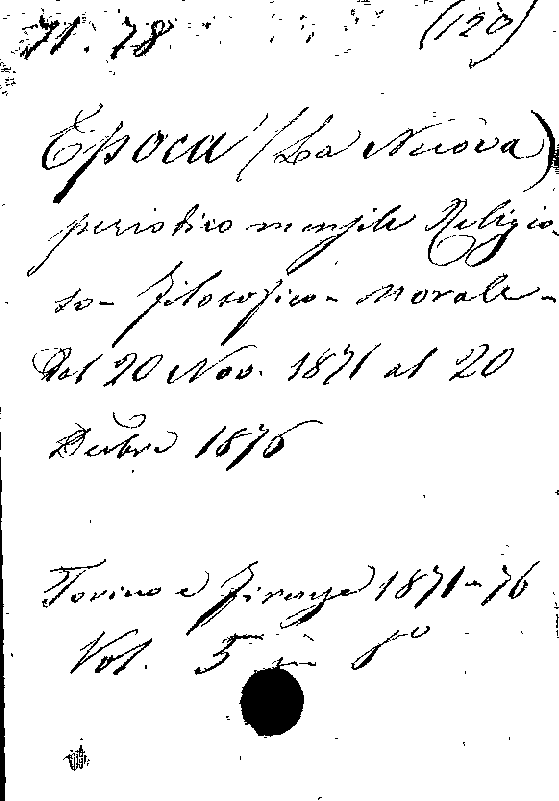 71.78 (120)
Epoca (La Nuova)
periodico mensile Religio-
so-filosofico-morale-
Dal 20 Nov. 1871 al 20
Dicbre 1876
Torino e Firenze 1871-76
Vol. 5 in 8º